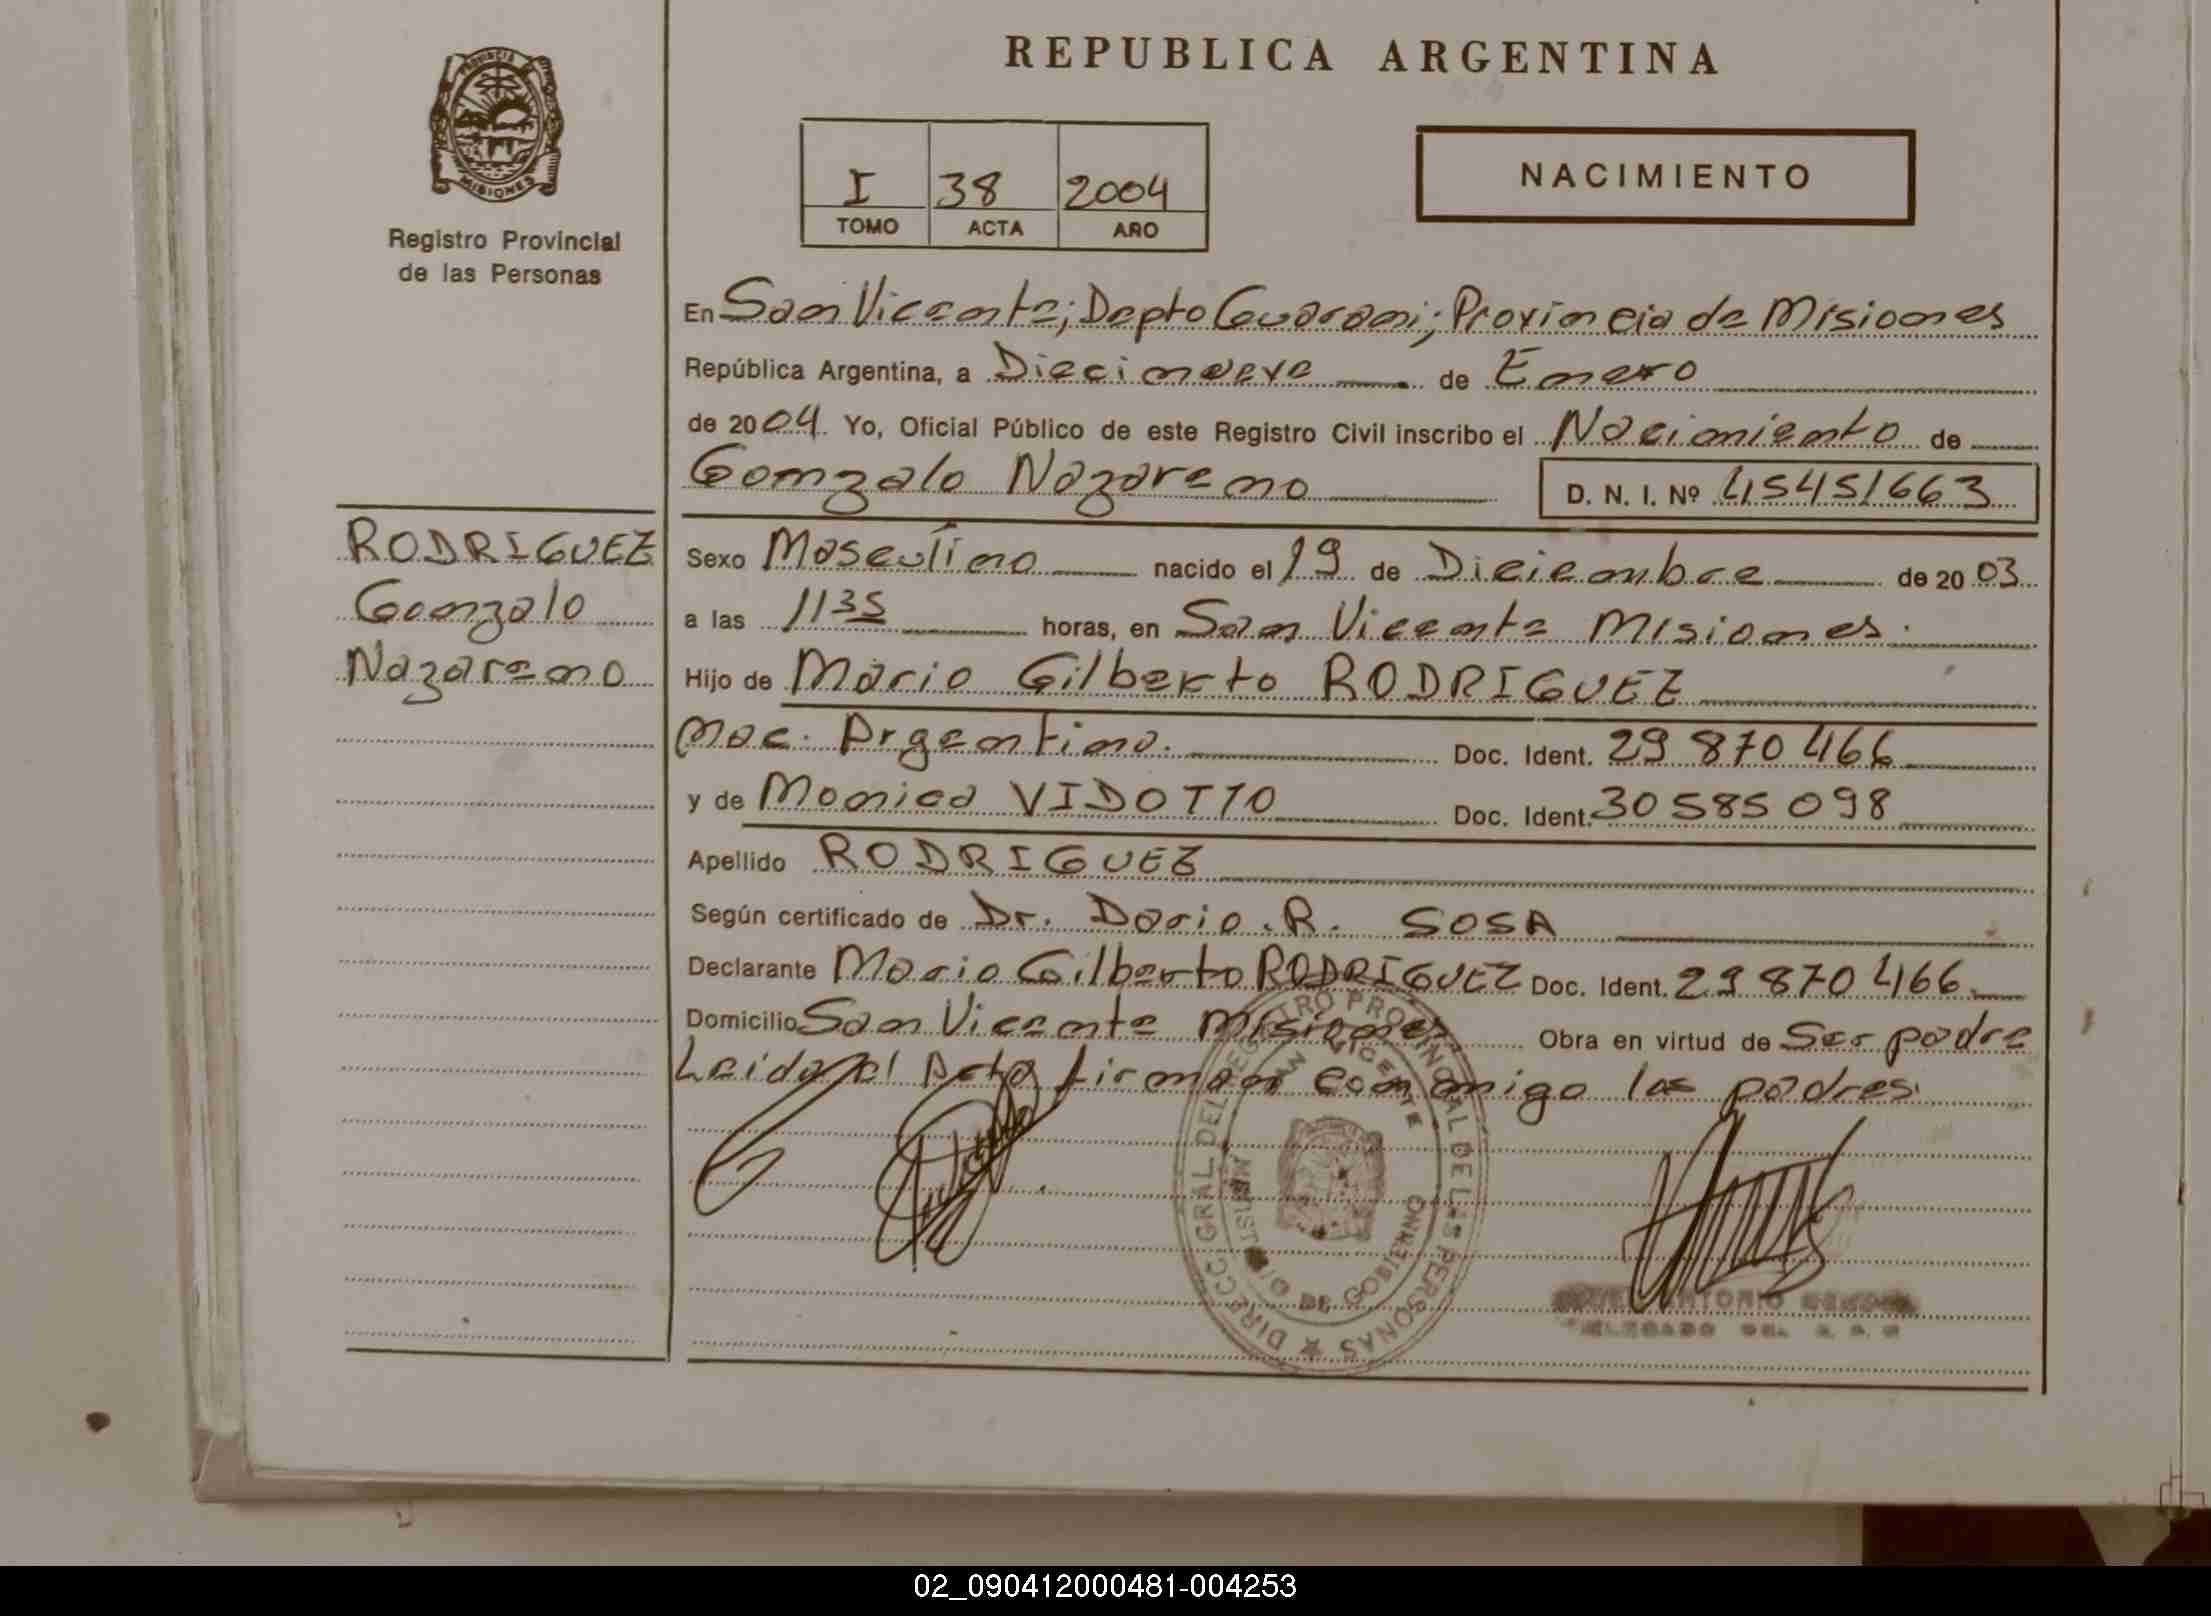 PROVINCIA DE
MISIONES
Registro Provincial
de las Personas
REPUBLICA ARGENTINA
I 38 2004
TOMO ACTA AÑO
NACIMIENTO
En San Vicente; Depto Guarani; Provincia de Misiones
República Argentina, a Diecinueve de Enero
de 2004. Yo, Oficial Público de este Registro Civil inscribo el Nacimiento de
Gonzalo Nazareno D. N. I. Nº 45451663
RODRIGUEZ
Gonzalo
Nazareno
Sexo Masculino nacido el 19 de Diciembre de 2003
a las 1135 horas, en San Vicente Misiones.
Hijo de Mario Gilberto RODRIGUEZ
Nac. Argentino. Doc. Ident. 29 870 466
y de Monica VIDOTTO Doc. Ident. 30 585 098
Apellido RODRIGUEZ
Según certificado de Dr. Dario. R. SOSA
Declarante Mario Gilberto RODRIGUEZ Doc. Ident. 29 870 466
Domicilio San Vicente Misiones Obra en virtud de Ser padre
Leida el Acta firman conmigo los padres.
DIRECC. GRAL. DEL REGISTRO PROVINCIAL DE LAS PERSONAS
SAN VICENTE
MINISTERIO DE GOBIERNO
ANTONIO
DELEGADO DEL R. P. P.
02_090412000481-004253